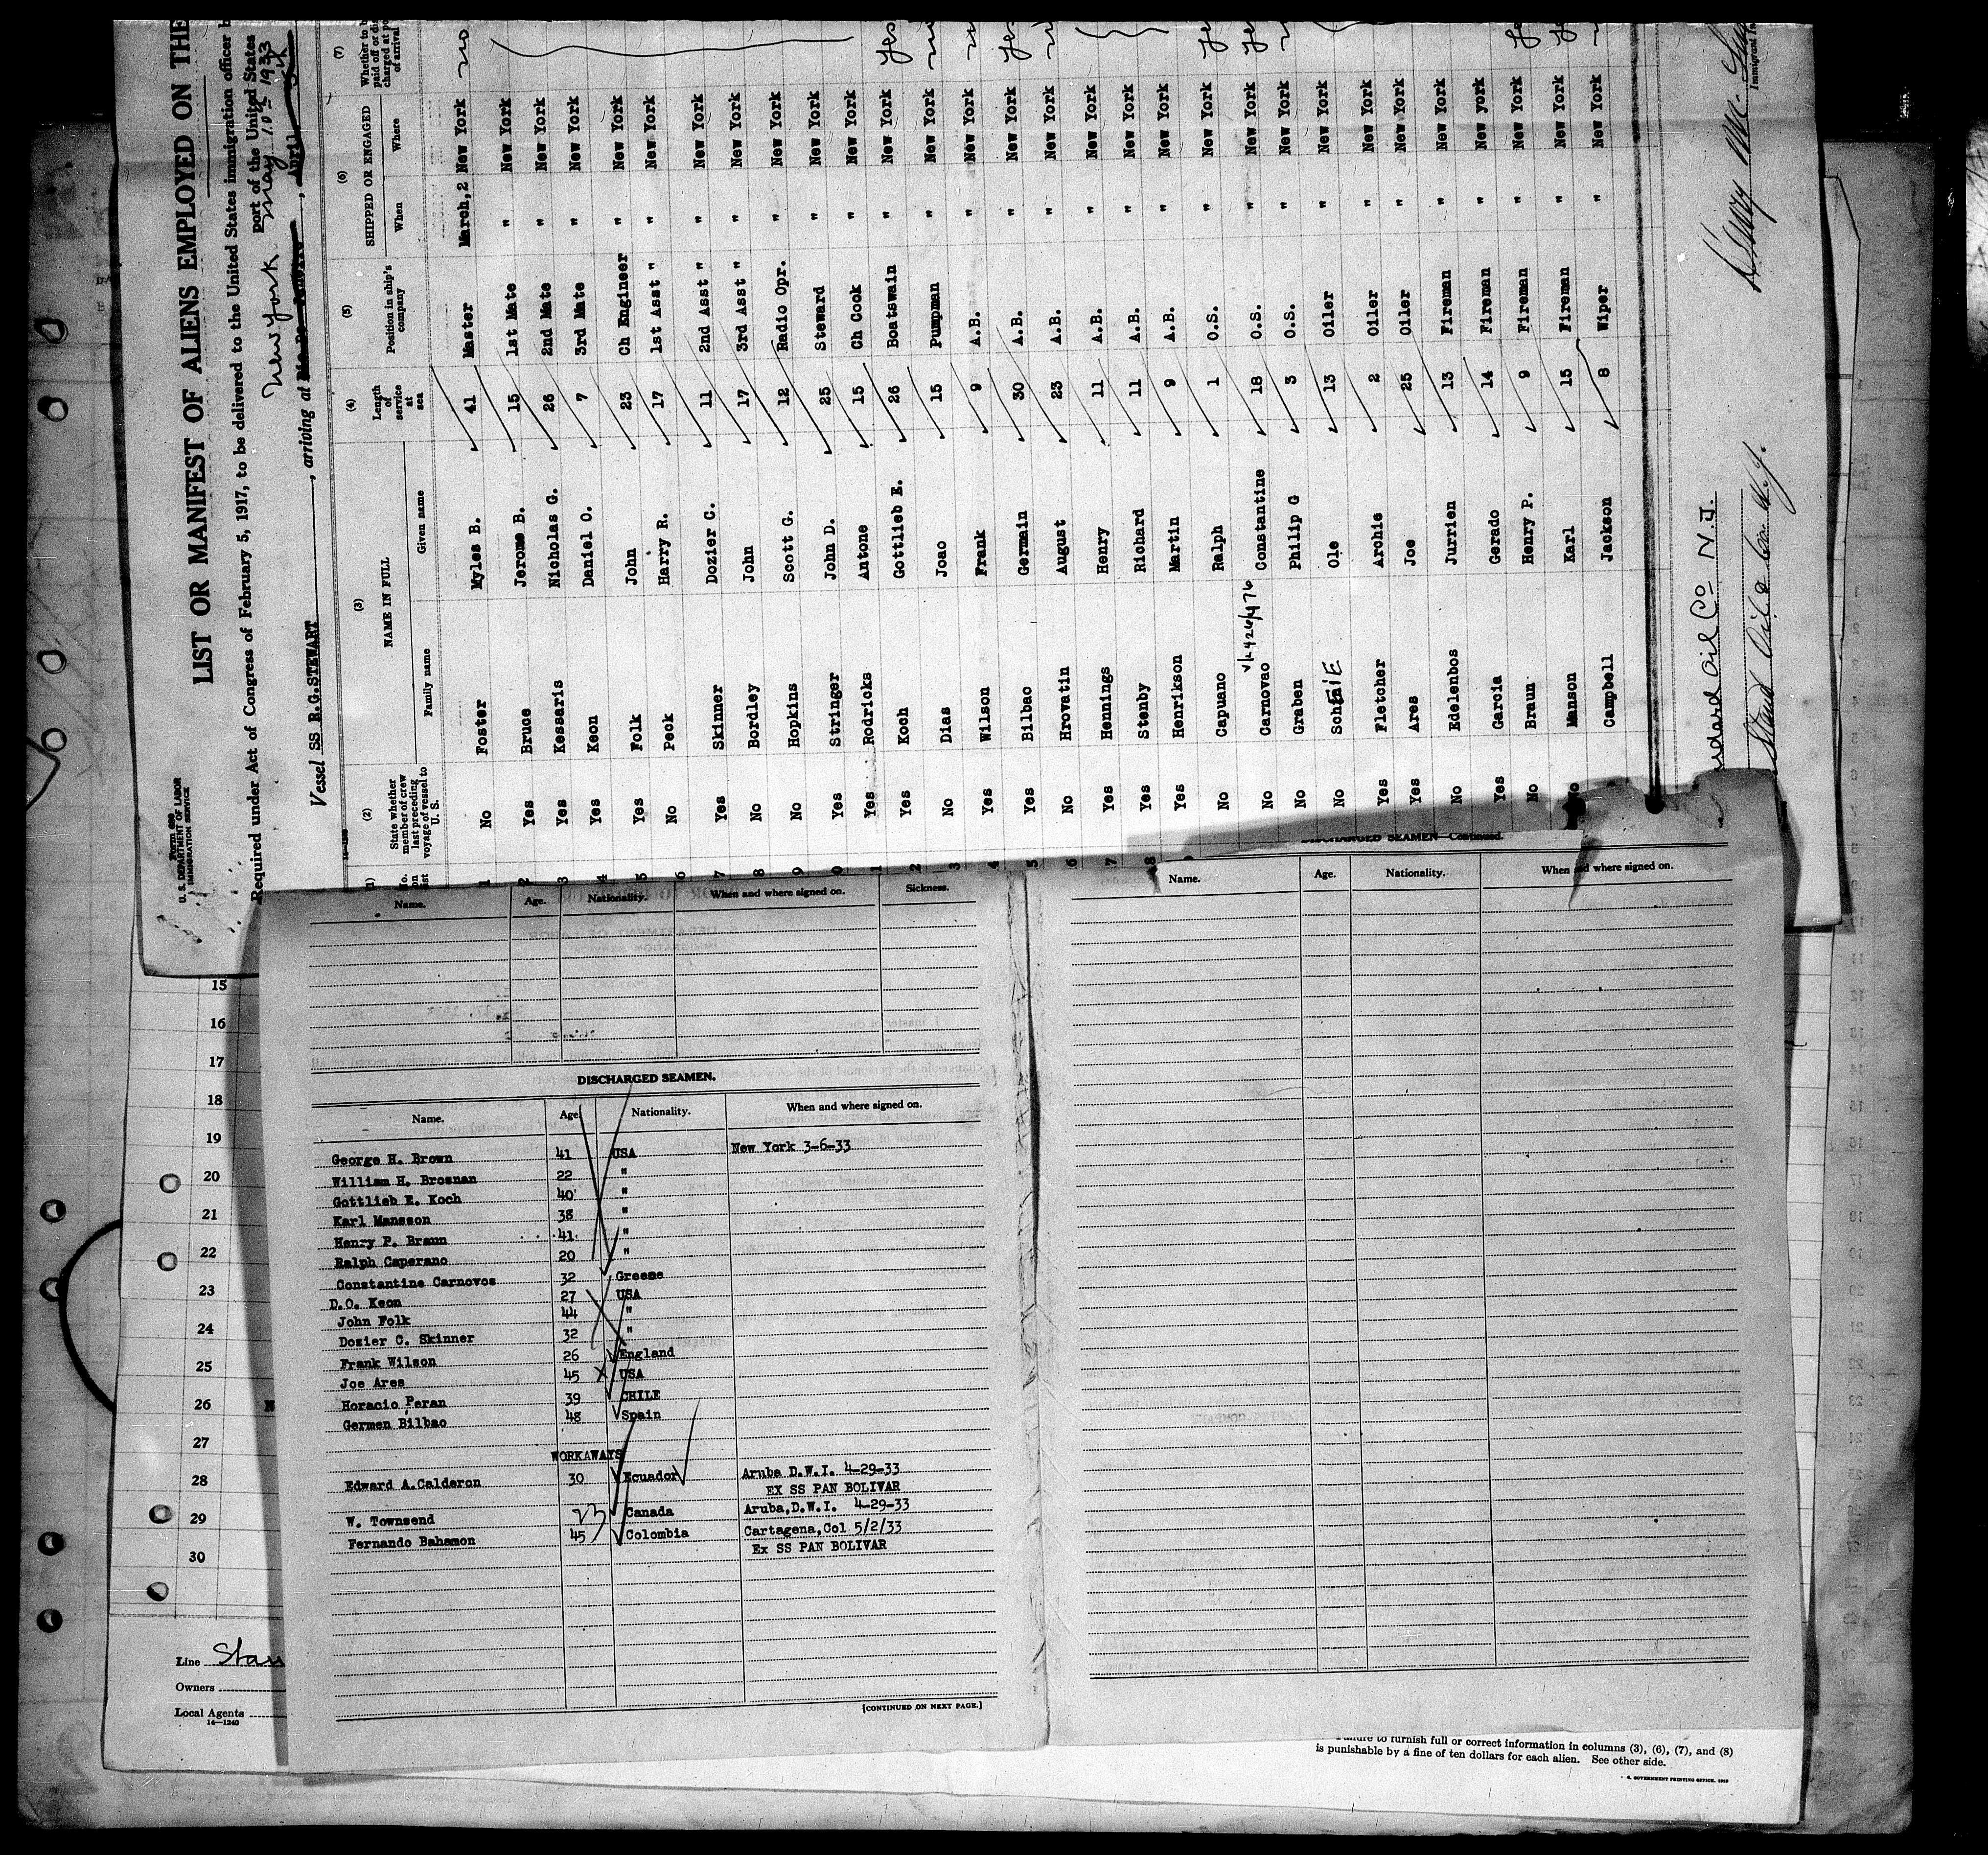 Form 689
U. S. DEPARTMENT OF LABOR
IMMIGRATION SERVICE
LIST OR MANIFEST OF ALIENS EMPLOYED ON THE
Required under Act of Congress of February 5, 1917, to be delivered to the United States immigration officer b
port of the United States
Vessel SS R.G.STEWART, arriving at New York May 10th 1933
(1) (2) (3) (4) (5) (6) (7)
No. on list State whether member of crew last preceding voyage of vessel to U. S. NAME IN FULL Length of service at sea Position in ship's company SHIPPED OR ENGAGED Whether to b paid off or dis charged at po of arrival
Family name Given name When Where
1 No Foster Myles B. 41 Master March,2 New York no
2 Yes Bruce Jerome B. 15 1st Mate " New York
3 Yes Kessaris Nicholas G. 26 2nd Mate " New York
4 Yes Keon Daniel O. 7 3rd Mate " New York
5 Yes Folk John 23 Ch Engineer " New York
6 No Peck Harry R. 17 1st Asst " " New York
7 Yes Skinner Dozier C. 11 2nd Asst " " New York
8 No Bordley John 17 3rd Asst " " New York
9 No Hopkins Scott G. 12 Radio Opr. " New York
0 Yes Stringer John D. 25 Steward " New York
1 Yes Rodricks Antone 15 Ch Cook " New York
2 Yes Koch Gottlieb E. 26 Boatswain " New York yes
3 No Dias Joao 15 Pumpman " New York
4 Yes Wilson Frank 9 A.B. " New York
5 Yes Bilbao Germain 30 A.B. " New York yes
6 No Hrovatin August 23 A.B. " New York
7 Yes Hennings Henry 11 A.B. " New York
8 Yes Stenby Richard 11 A.B. " New York
Yes Henrikson Martin 9 A.B. " New York
No Capuano Ralph 1 O.S. " New York
No Carnovao Constantine 18 O.S. " New York
No Graben Philip G 3 O.S. " New York
No Ole 13 Oiler " New York
Yes Fletcher Archie 2 Oiler " New York
Yes Ares Joe 25 Oiler " New York
No Edelenbos Jurrien 13 Fireman " New York
Yes Garcia Gerado 14 Fireman " New york
No Braun Henry P. 9 Fireman " New York
No Manson Karl 15 Fireman " New York
Campbell Jackson 8 Wiper " New York
ndard Oil Co N.J.
Stand Oil Co N.J.
Immigrant In
Name. Age. Nationality. When and where signed on. Sickness.
DISCHARGED SEAMEN.
Name. Age. Nationality. When and where signed on.
George H. Brown 41 USA New York 3-6-33
William H. Brosnan 22 "
Gottlieb E. Koch 40 "
Karl Mansson 38 "
Henry P. Braun 41 "
Ralph Caperano 20 "
Constantine Carnovos 32 Greene
D.O. Keon 27 USA
John Folk 44 "
Dozier C. Skinner 32 "
Frank Wilson 26 England
Joe Ares 45 USA
Horacio Peran 39 CHILE
Germen Bilbao 48 Spain
WORKAWAYS
Edward A.Calderon 30 Ecuador Aruba D.W.I. 4-29-33
EX SS PAN BOLIVAR
W. Townsend 23 Canada Aruba,D.W.I. 4-29-33
Fernando Bahamon 45 Colombia Cartagena,Col 5/2/33
Ex SS PAN BOLIVAR
[CONTINUED ON NEXT PAGE.]
DISCHARGED SEAMEN—Continued.
Name. Age. Nationality. When and where signed on.
15
16
17
18
19
20
21
22
23
24
25
26
27
28
29
30
Line Stan
Owners
Local Agents
14—1240
Failure to furnish full or correct information in columns (3), (6), (7), and (8)
is punishable by a fine of ten dollars for each alien. See other side.
GOVERNMENT PRINTING OFFICE